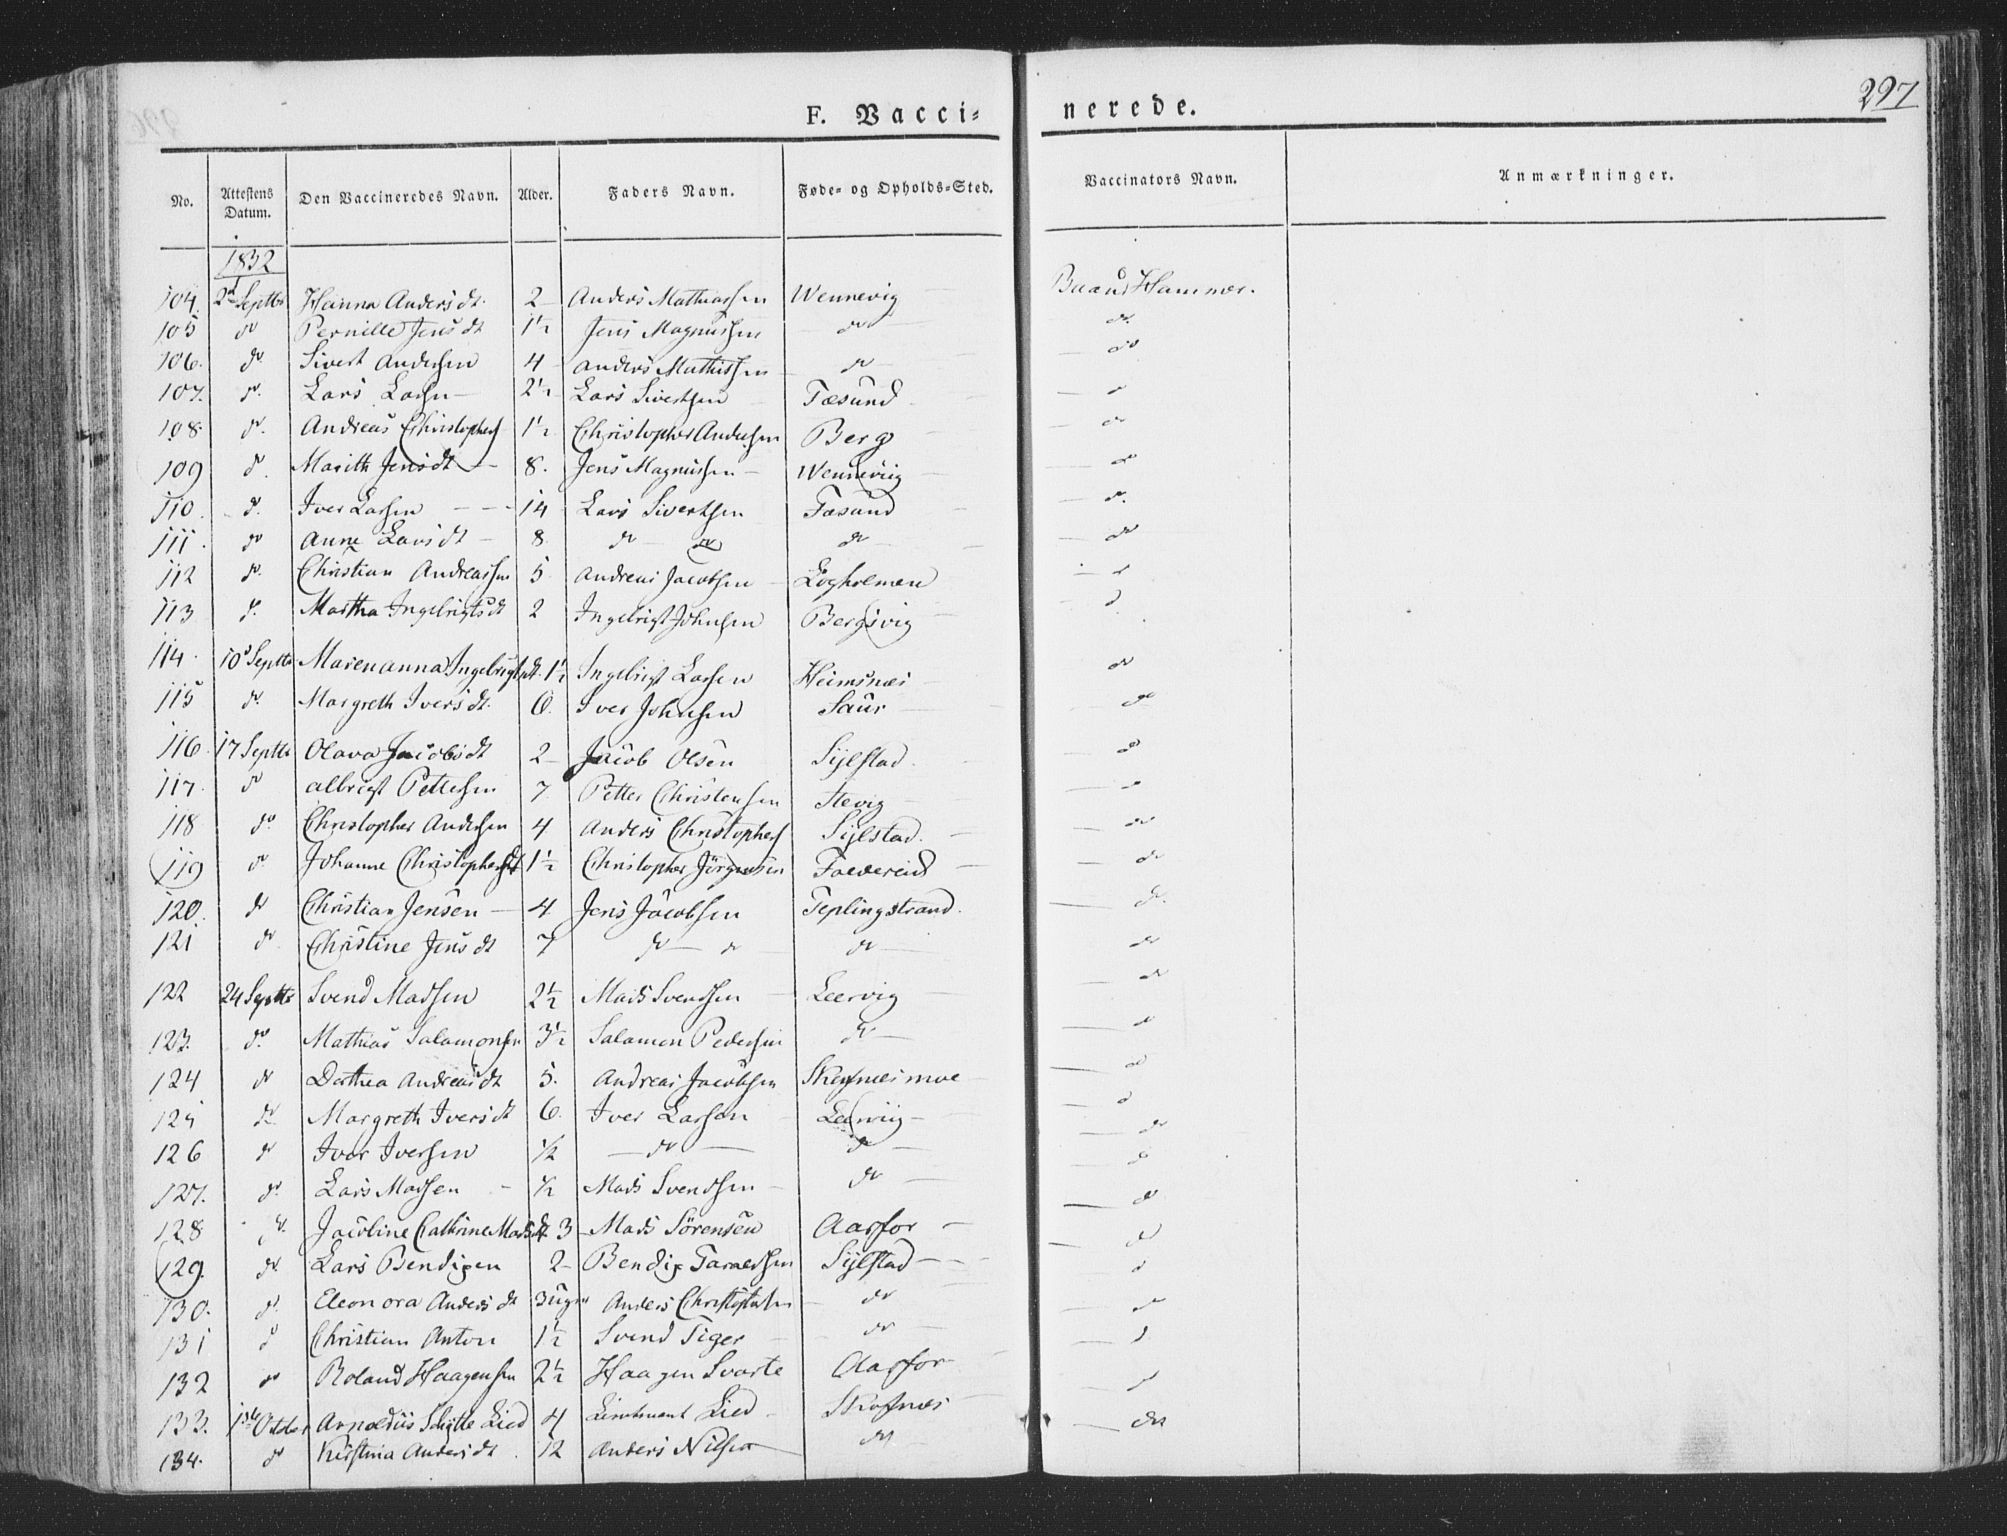 297
F. Vacci- nerede.
No. Attestens Datum. Den Vaccineredes Navn. Alder. Faders Navn. Føde- og Opholds-Sted. Vaccinators Navn. Anmærkninger.
1832
104. 2d Septbr Hanna Andersdt. 2 Anders Mathiassen Wennevig Hammer.
105 do Pernille Jensdt 1½ Jens Magnussen do do
106. do Sivert Andersen 4 Anders Mathissen do do
107. do Lars Larsen 2½ Lars Sivertsen Fæsund do
108 do Andreas Christophers 1½ Christopher Andersen Berg do
109 do Marith Jensdt 8. Jens Magnussen Wennevig do
110. do Iver Larsen 14 Lars Sivertsen Fæsund do
111. do Anne Larsdt 8 do do do do
112 do Christian Andreassen 5 Andreas Jacobsen Løgholmen do
113 do Martha Ingebrigtsdt 2 Ingebrigt Johnsen Bergsvig do
114. 10 Septbr Marenanna Ingebrigtsdt. 1½ Ingebrigt Larsen Heimsnæs do
115 do Margreth Iversdt. 6. Iver Johnsen Saur do
116. 17 Septbr Olava Jacobsdt 2 Jacob Olsen Sylstad do
117. do Albrigt Pettersen 7 Petter Christensen do
118 do Christopher Andersen 4 Anders Christophers Sylstad. do
119 do Johanne Christophersdt 1½ Christopher Jörgensen Foldereid do
120. do Christian Jensen 4 Jens Jacobsen Teplingstrand. do
121 do Christine Jensdt 7 do do do do
122 24 Septbr Svend Madsen 2½ Mads Svendsen Leervig do
123. do Mathias Salamonsen 3½ Salamon Pedersen do do
124 do Dorthea Andreasdt 5. Andreas Jacobsen do
125 do Margreth Iversdt 6. Iver Larsen Leervig do
126 do Iver Iversen ½ do do do
127. do Lars Madsen ½ Mads Svendsen do do
128 do Jacobine Cathrine Madsdt 3 Mads Sörensen Aarfor do
129. do Lars Bendixen 2 Bendix Taraldsen Sylstad do
130. do Eleonora Andersdt 3 Uger Anders Christophersen do do
131 do Christian Anton 1½ Svend Tiger do do
132 do Roland Haagensen 2½ Haagen Svarte Aarfor do
133. 1ste Octbr Arnoldus Schytte Lied 4 Lieutnant Lied do
134. do Kirstina Andersdt 12 Anders Nilsen do